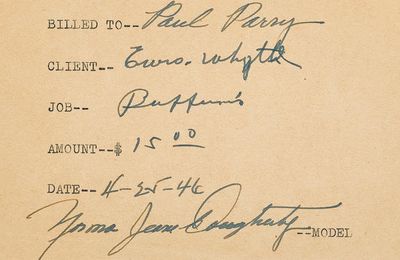 BILLED TO-- Paul Parry
CLIENT-- Ewrs. Whytk
JOB-- Buffum's
AMOUNT--$ 15 00
DATE-- 4-25-46
Norma Jeane Dougherty --MODEL